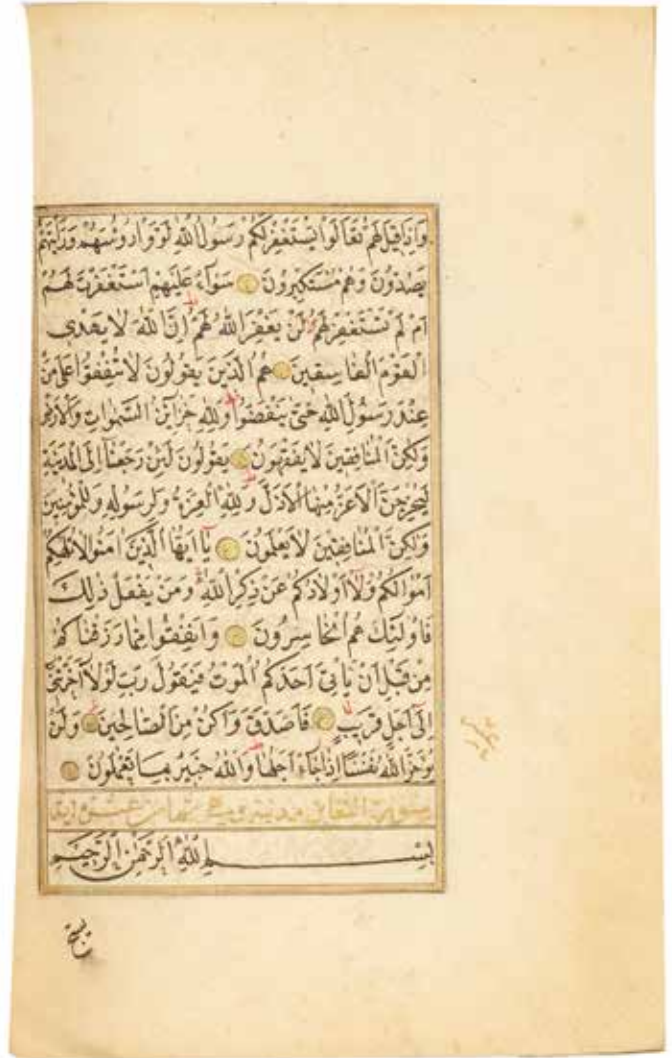 وَاِذَا قِيلَ لَهُمْ تَعَالَوْا يَسْتَغْفِرْ لَكُمْ رَسُولُ اللّٰهِ لَوَّوْا رُؤُسَهُمْ وَرَاَيْتَهُمْ
يَصُدُّونَ وَهُمْ مُسْتَكْبِرُونَ سَوَآءٌ عَلَيْهِمْ اَسْتَغْفَرْتَ لَهُمْ
اَمْ لَمْ تَسْتَغْفِرْ لَهُمْ لَنْ يَغْفِرَ اللّٰهُ لَهُمْ اِنَّ اللّٰهَ لَا يَهْدِى
الْقَوْمَ الْفَاسِقِينَ هُمُ الَّذِينَ يَقُولُونَ لَا تُنْفِقُوا عَلٰى مَنْ
عِنْدَ رَسُولِ اللّٰهِ حَتّٰى يَنْفَضُّوا وَلِلّٰهِ خَزَآئِنُ السَّمٰوَاتِ وَالْاَرْضِ
وَلٰكِنَّ الْمُنَافِقِينَ لَا يَفْقَهُونَ يَقُولُونَ لَئِنْ رَجَعْنَآ اِلَى الْمَدِينَةِ
لَيُخْرِجَنَّ الْاَعَزُّ مِنْهَا الْاَذَلَّ وَلِلّٰهِ الْعِزَّةُ وَلِرَسُولِهِ وَلِلْمُؤْمِنِينَ
وَلٰكِنَّ الْمُنَافِقِينَ لَا يَعْلَمُونَ يَآ اَيُّهَا الَّذِينَ اٰمَنُوا لَا تُلْهِكُمْ
اَمْوَالُكُمْ وَلَآ اَوْلَادُكُمْ عَنْ ذِكْرِ اللّٰهِ وَمَنْ يَفْعَلْ ذٰلِكَ
فَاُولٰئِكَ هُمُ الْخَاسِرُونَ وَاَنْفِقُوا مِمَّا رَزَقْنَاكُمْ
مِنْ قَبْلِ اَنْ يَاْتِىَ اَحَدَكُمُ الْمَوْتُ فَيَقُولَ رَبِّ لَوْلَآ اَخَّرْتَنِى
اِلٰٓى اَجَلٍ قَرِيبٍ فَاَصَّدَّقَ وَاَكُنْ مِنَ الصَّالِحِينَ وَلَنْ
يُؤَخِّرَ اللّٰهُ نَفْسًا اِذَا جَآءَ اَجَلُهَا وَاللّٰهُ خَبِيرٌ بِمَا تَعْمَلُونَ
سورة التغابن مدنية وهى ثمان عشرة اية
بِسْمِ اللّٰهِ الرَّحْمٰنِ الرَّحِيمِ
يسبح